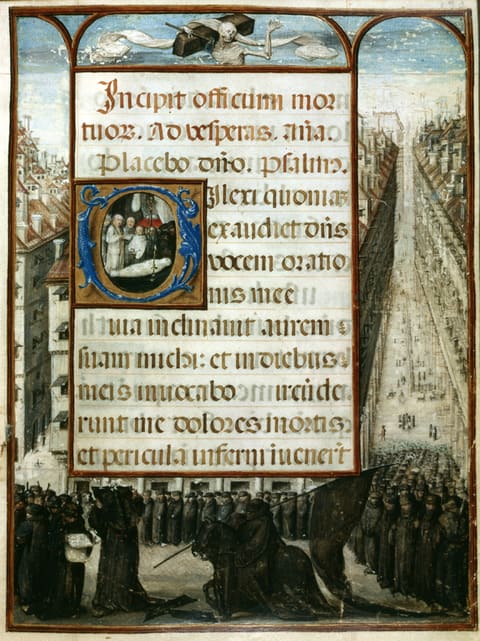 Incipit officium mor
tuoꝝ. Ad vesperas. Aña
Placebo dño. Psalm.
Dilexi quoniaꝫ
exaudiet dñs
vocem oratio
nis mee
uia inclinauit aurem
suam michi: et in diebus
meis inuocabo ircūde
runt me dolores mortis
et pericula inferni